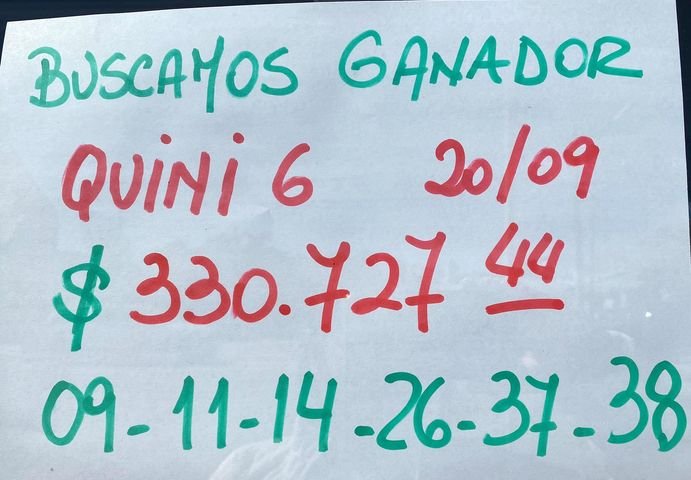 BUSCAMOS GANADOR
QUINI 6 20/09
$ 330.727 44
09-11-14-26-37-38